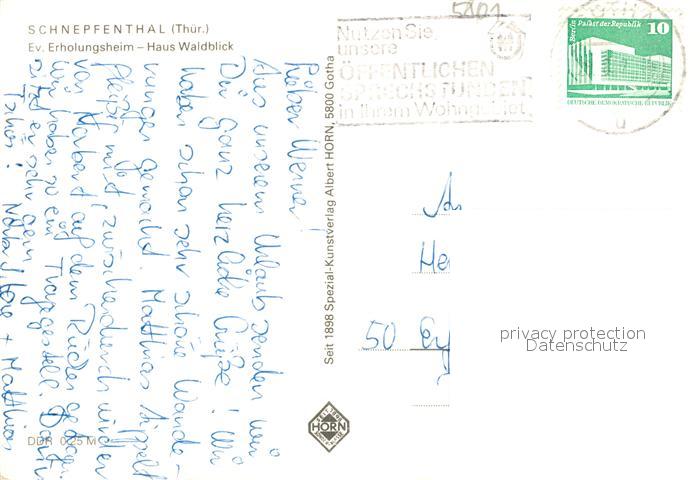 SCHNEPFENTHAL (Thür.)
Ev. Erholungsheim – Haus Waldblick
Nutzen Sie
unsere
ÖFFENTLICHEN
SPRECHSTUNDEN
in Ihrem Wohngebiet
Berlin Palast der Republik
10
DEUTSCHE DEMOKRATISCHE REPUBLIK
u
Lieber Werner!
Aus unserem Urlaub senden wir
Dir ganz herzliche Grüße! Wir
haben schon sehr schöne Wande-
rungen gemacht. Matthias tippelt
fleißig mit, zwischendurch wird er
von Norbert auf dem Rücken getragen.
Wir haben so ein Tragegestell. Darin
sitzt er sehr gern
Tschüs!
+ Matthias
Seit 1898 Spezial-Kunstverlag Albert HORN, 5800 Gotha
An
He
50
privacy protection
Datenschutz
HORN
DDR 0,25 M